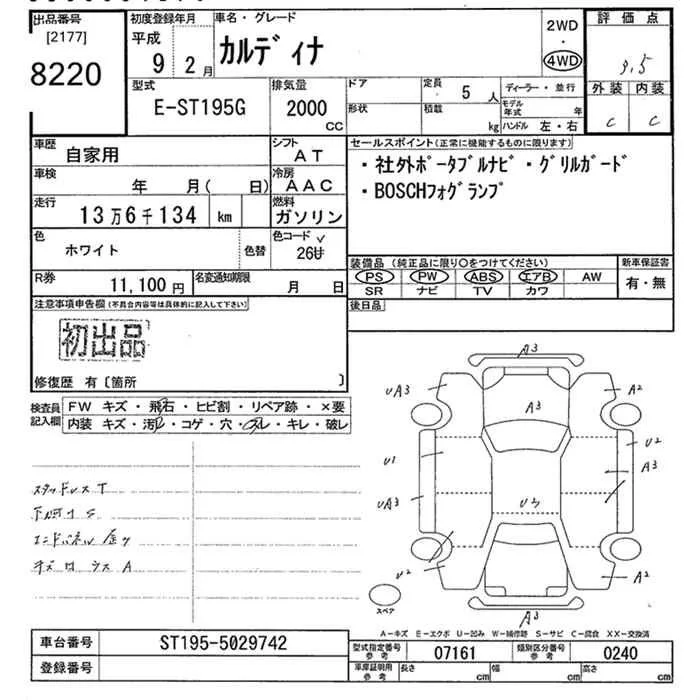 出品番号
[2177]
8220
初度登録年月
平成
9 2 月
車名・グレード
カルディナ
2WD
・
4WD
評価点
外装 内装
C C
型式
E-ST195G
排気量
2000
CC
ドア
形状
定員 5 人
積載 kg
ディーラー・並行
モデル年式 年
ハンドル 左・右
車歴
自家用
シフト
AT
車検
年 月( 日)
冷房
AAC
走行
13万6千134 km
燃料
ガソリン
色
ホワイト
色替
色コード
26サ
R券
11,100円
名変通知期限
月 日
セールスポイント(正常に機能するものに限ります)
・社外ポータブルナビ・グリルガード
・BOSCHフォグランプ
装備品 (純正品に限り○をつけてください)
PS PW ABS エアB AW
SR ナビ TV カワ
新車保証書
有・無
後日品
注意事項申告欄(不具合内容等は具体的に記入して下さい)
初出品
修復歴 有〔箇所 〕
検査員記入欄
FW キズ・飛石・ヒビ割・リペア跡・×要
内装 キズ・汚れ・コゲ・穴・スレ・キレ・破レ
スタッドレスT
A3
UA3
A2
A3
U1
U2
A3
UA3
U2
A2
A3
スペア
A-キズ E-エクボ U-凹み W-補修跡 S-サビ C-腐食 XX-交換済
車台番号
ST195-5029742
登録番号
型式指定番号 参考
07161
類別区分番号 参考
0240
車庫証明用 参考
長さ cm
幅 cm
高さ cm